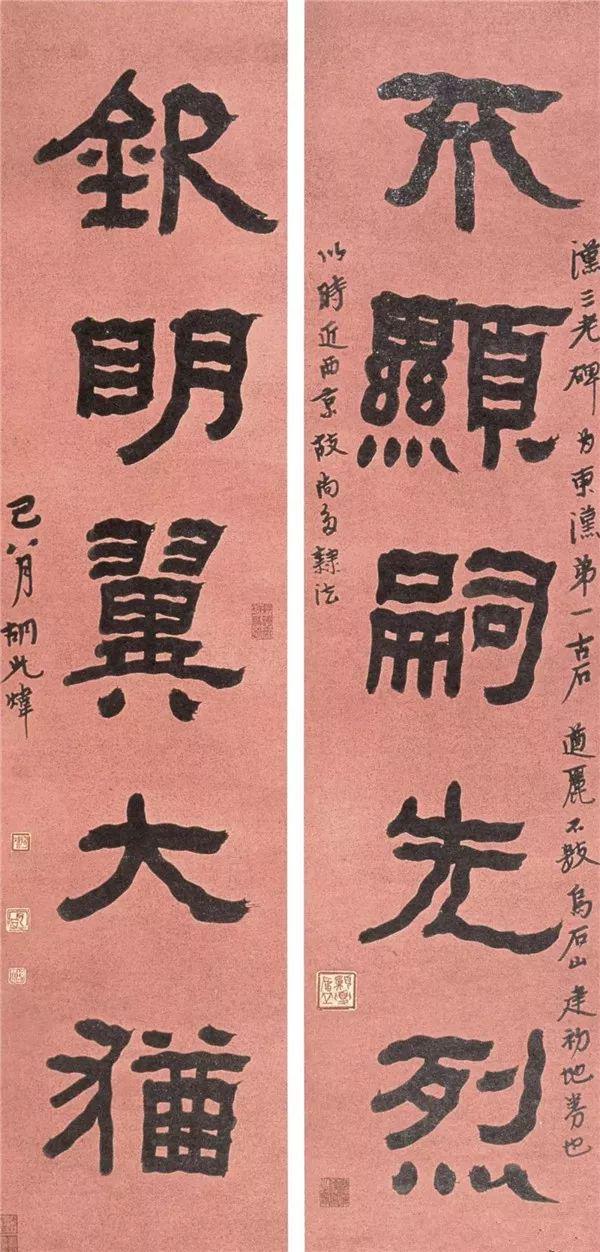 不顯嗣先烈
漢三老碑为東漢弟一古石遒麗不數烏石山建初地券也
以時近西京故尚多隸法
欽明翼大猶
巳八月胡光煒